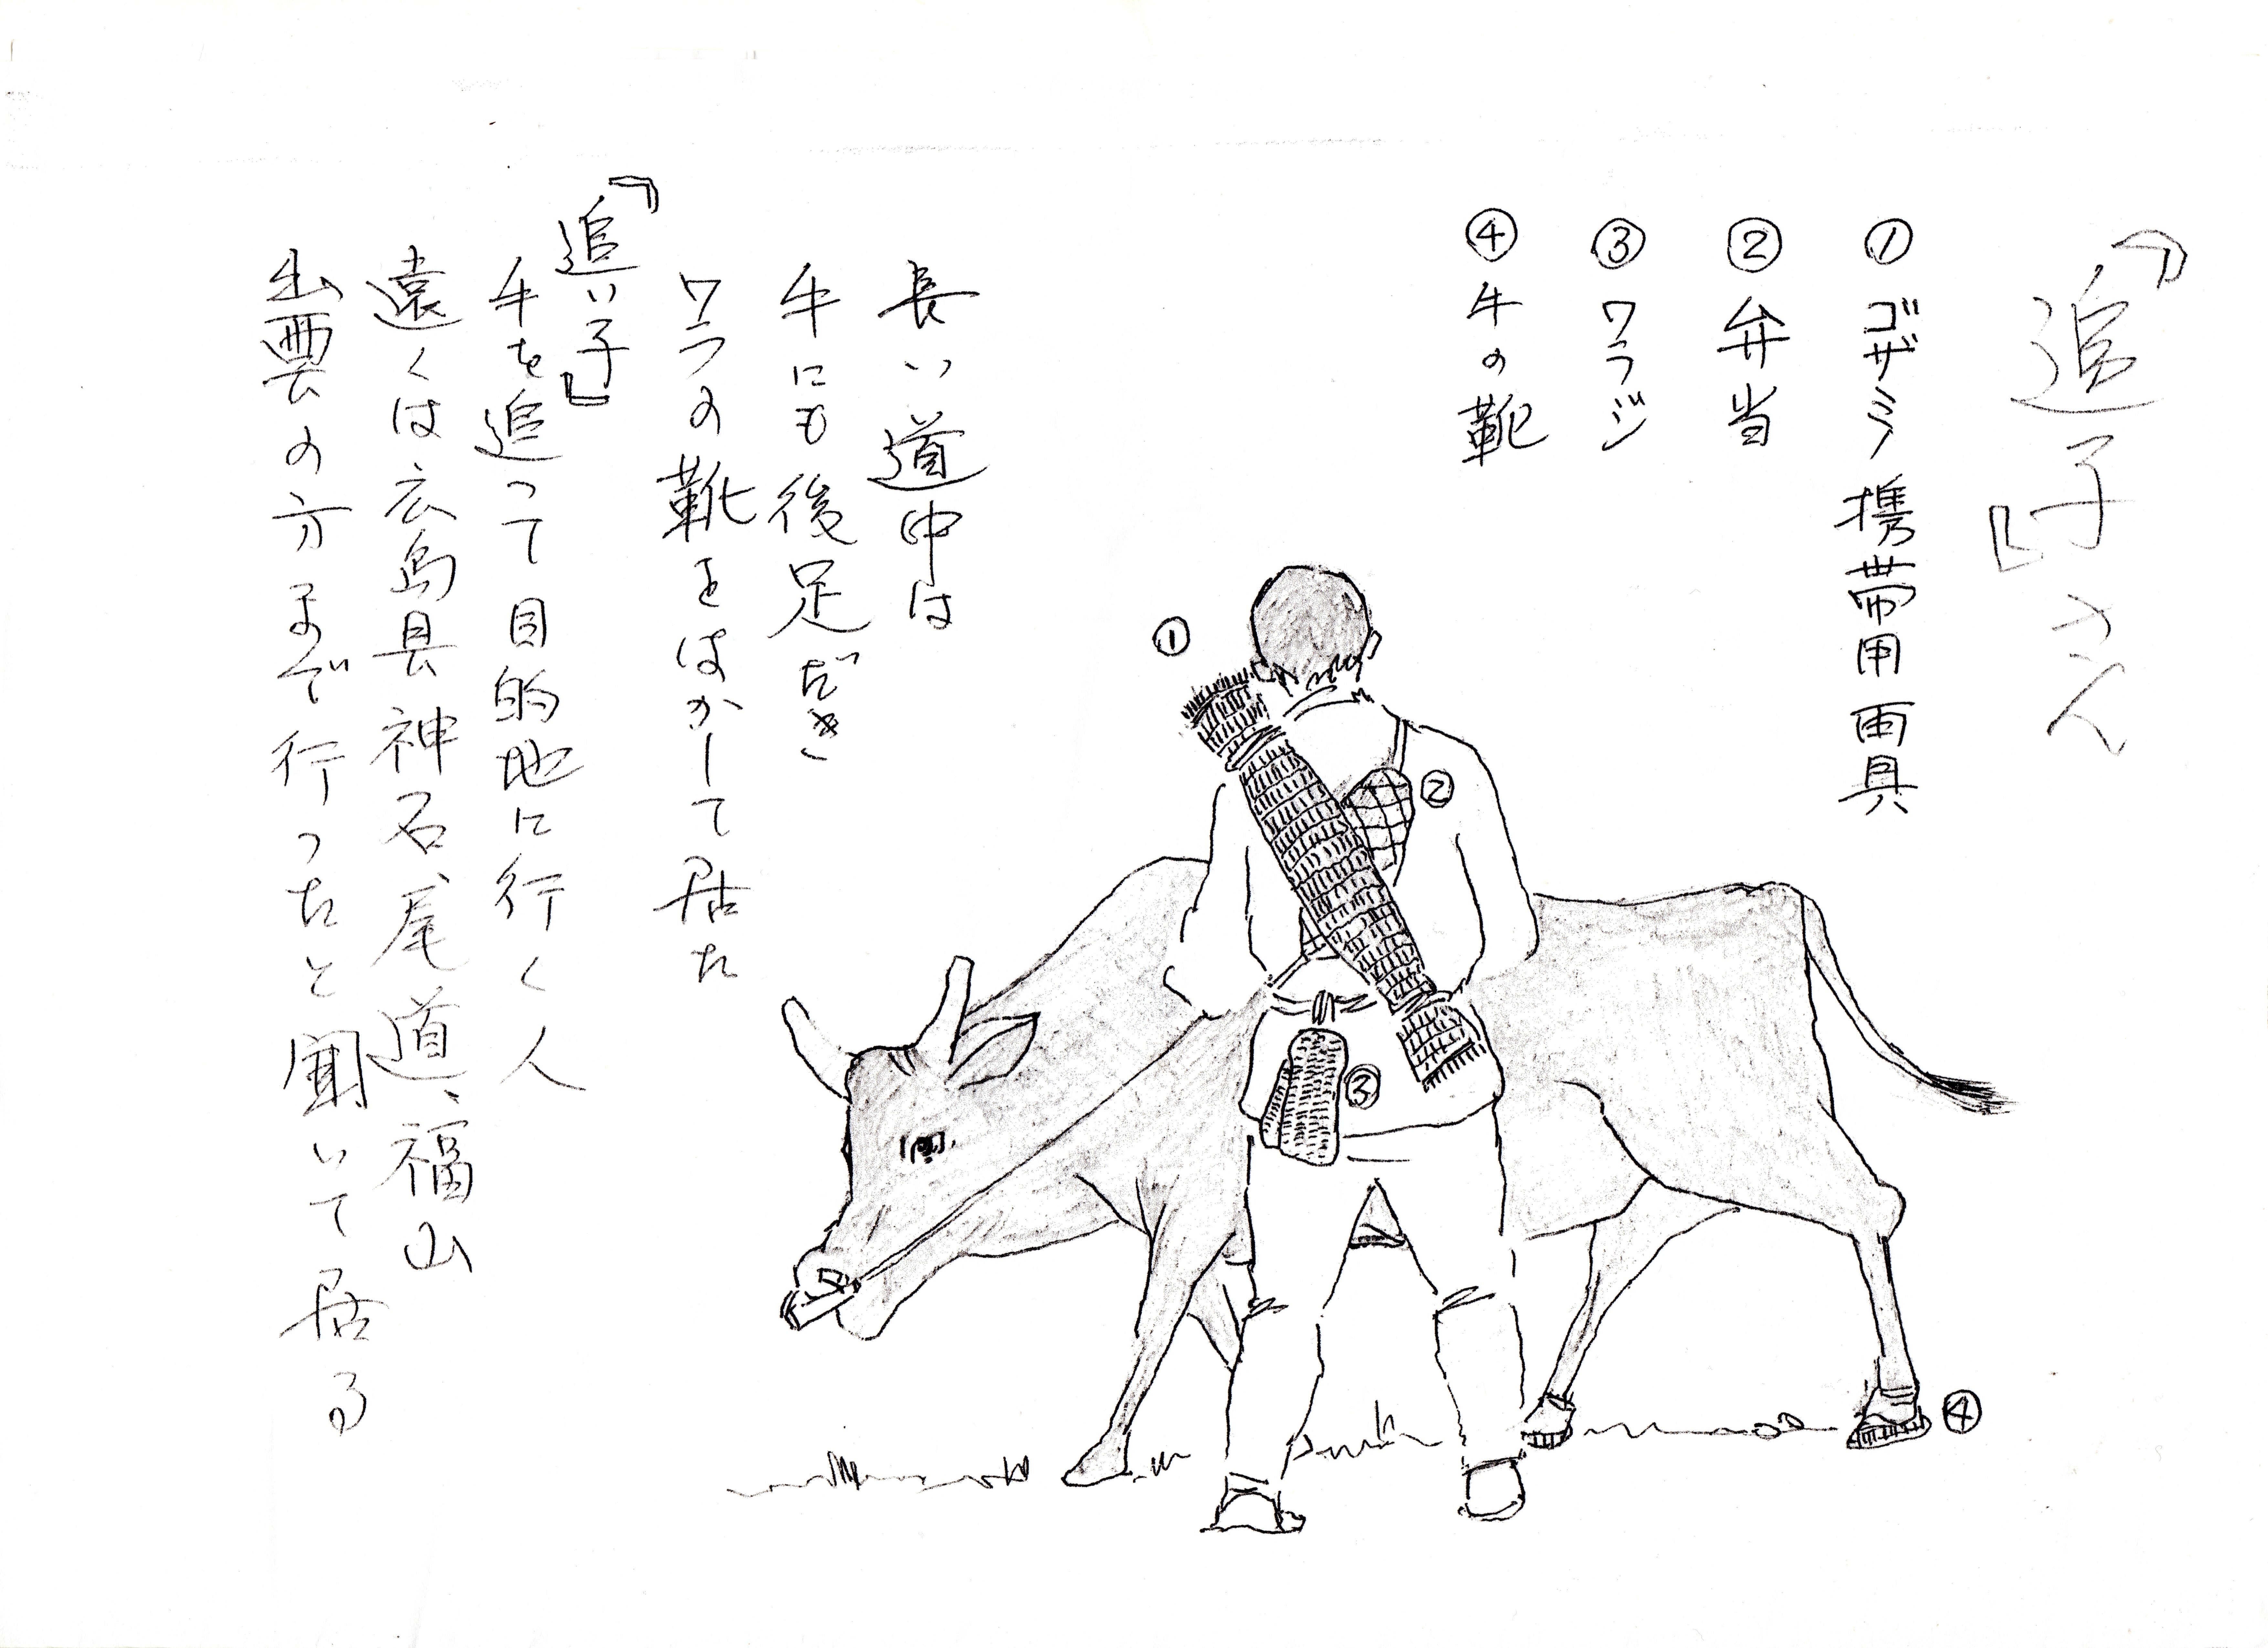 『追子』さん
① ゴザミノ 携帯用雨具
② 弁当
③ ワラジ
④ 牛の靴
長い道中は
牛にも後足だき
ワラの靴をはかして居た
『追い子』
牛を追って目的地に行く人
遠くは広島県神石、尾道、福山
出雲の方まで行ったと聞いて居る
①
②
③
④